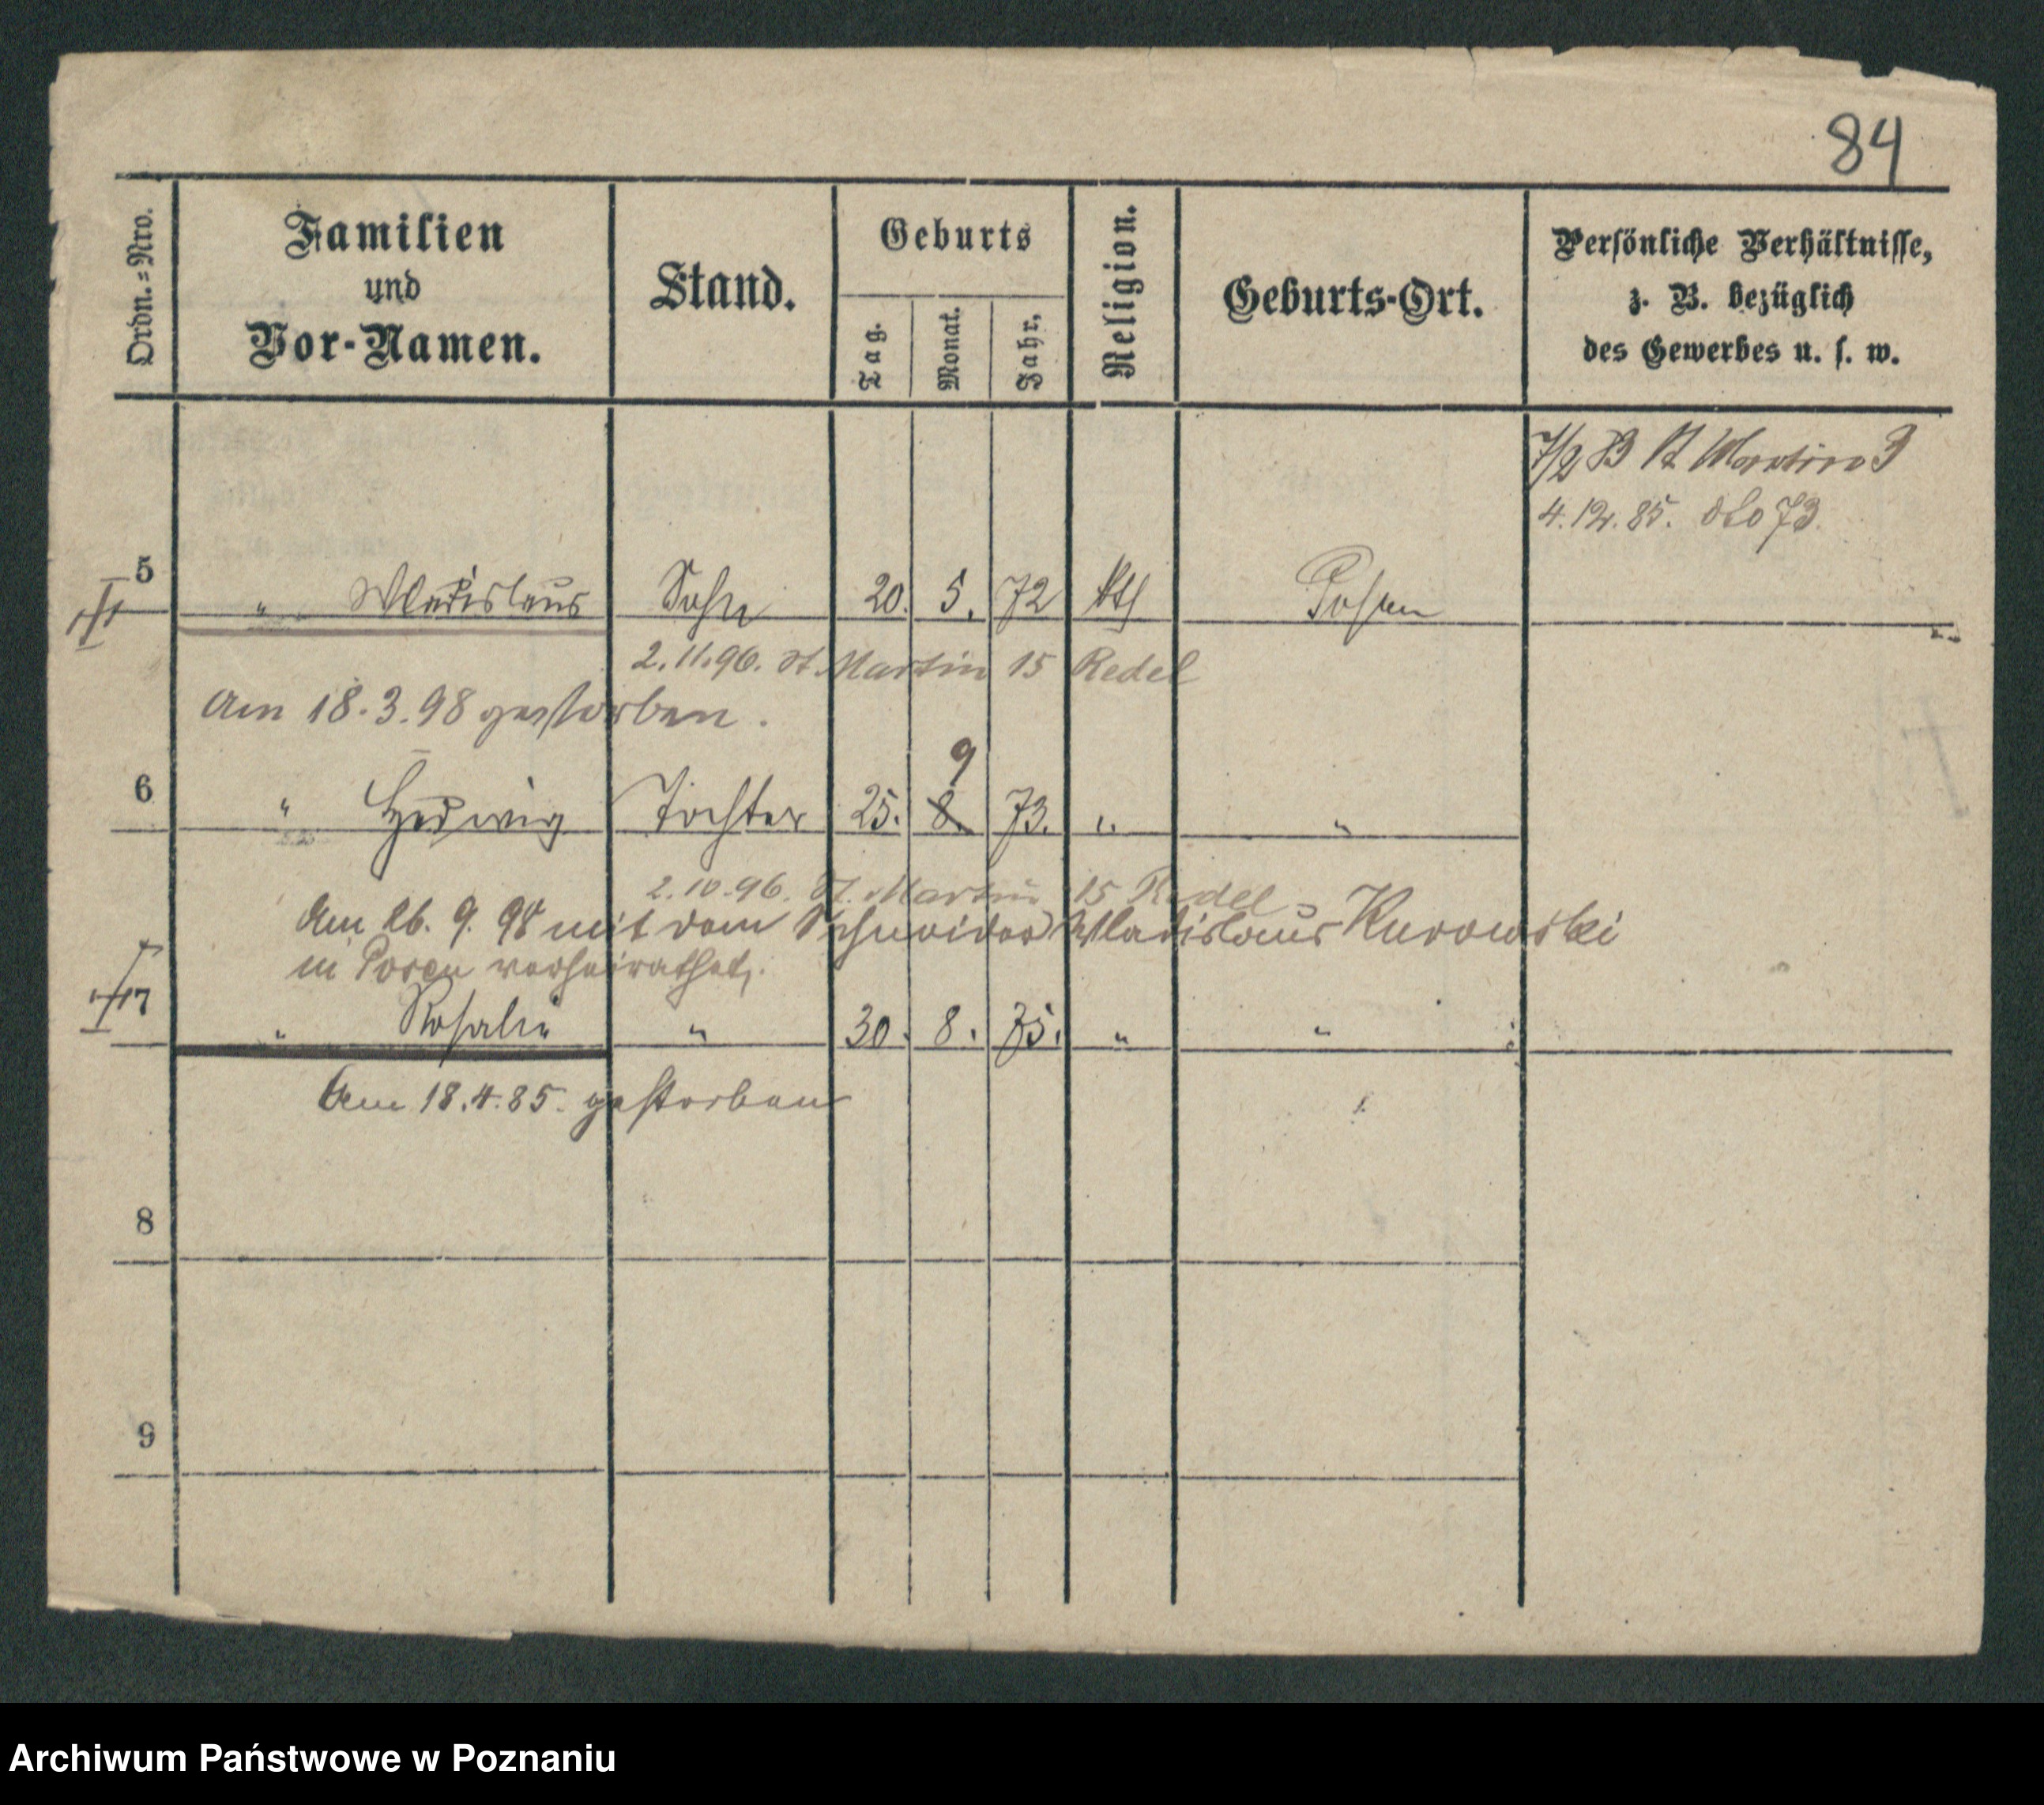 84
Ordn.=Nro.
Familien
und
Vor-Namen.
Stand.
Geburts
Tag.
Monat.
Jahr.
Religion.
Geburts-Ort.
Persönliche Verhältnisse,
z. B. bezüglich
des Gewerbes u. s. w.
St Martin 3
4.12.85. dto 73.
5 " Wladislaus Sohn 20. 5. 72 kth Posen
2.11.96. St. Martin 15 Redel
Am 18.3.98 gestorben.
9
6 " Hedwig Tochter 25. 8. 73. " "
2.10.96. St. Martin 15 Redel
Am 26. 9. 98 mit dem Schneider Wladislaus Kurowski
in Posen verheirathet.
7 " Rosalie " 30. 8. 75. " "
Am 18.4.85. gestorben
8
9
Archiwum Państwowe w Poznaniu